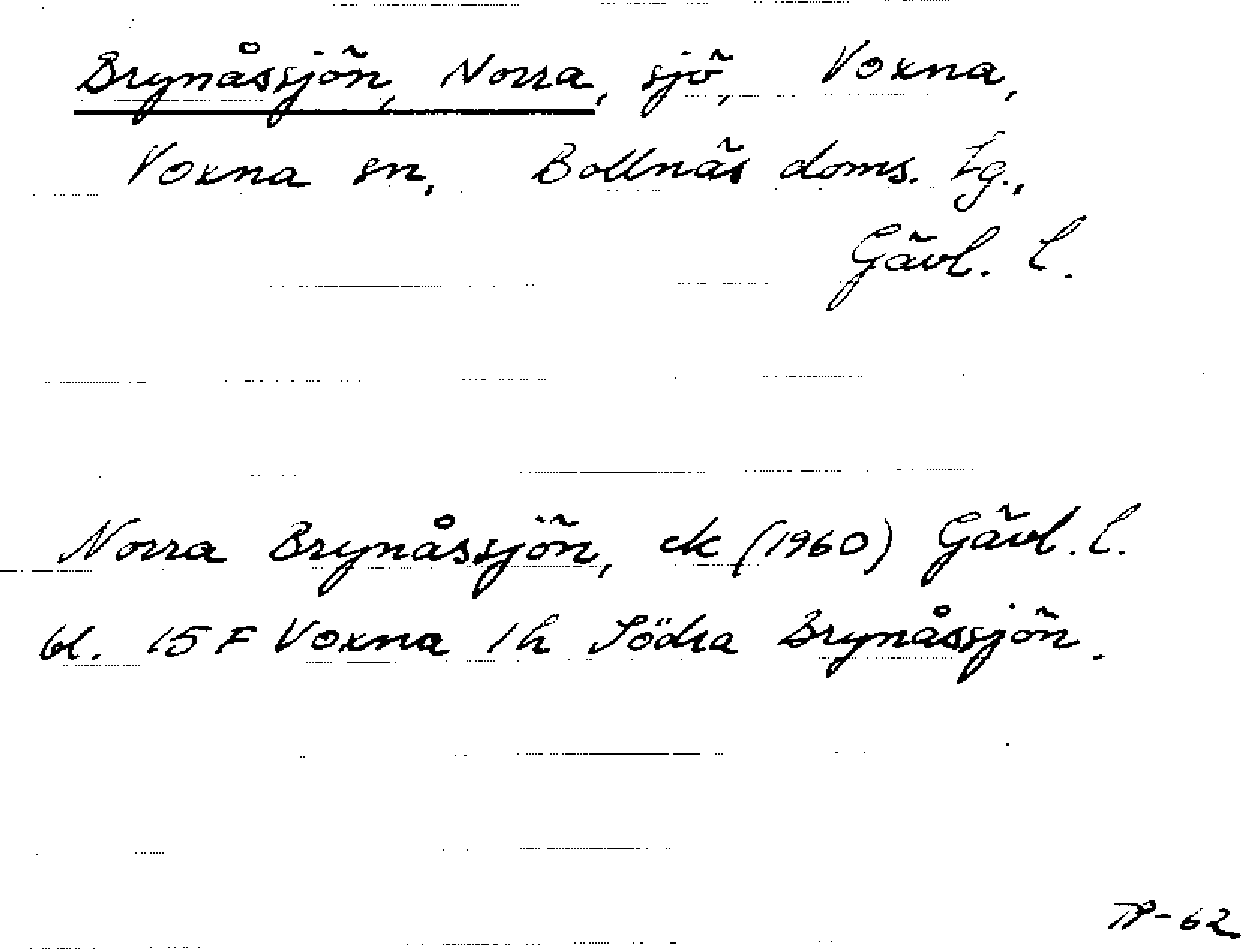 Brynåssjön, Norra, sjö, Voxna,
Voxna sn, Bollnäs doms. tg.,
Gävl. l.
Norra Brynåssjön, ek (1960) Gävl. l.
bl. 15 F Voxna 1h Södra Brynåssjön.
TP-62